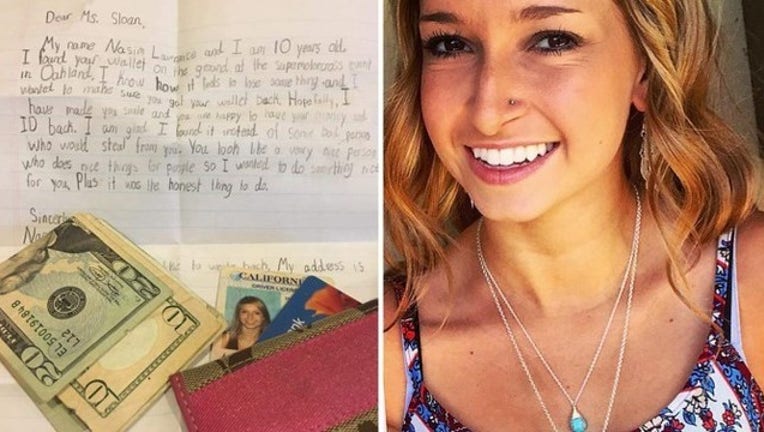 Dear Ms. Sloan,
My name Nasim Lawrence and I am 10 years old.
I found your wallet on the ground at the supermotorcross event
in Oakland. I know how it feels to lose something and I
wanted to make sure you got your wallet back. Hopefully, I
have made you smile and you are happy to have your money and
ID back. I am glad I found it instead of some bad person
who would steal from you. You look like a very nice person
who does nice things for people so I wanted to do something nice
for you. Plus it was the honest thing to do.
Sincerely
Na
like to write back, My address is
CALIFORNI
DRIVER LICENSE
20
EL50019188
L12
20
10
10